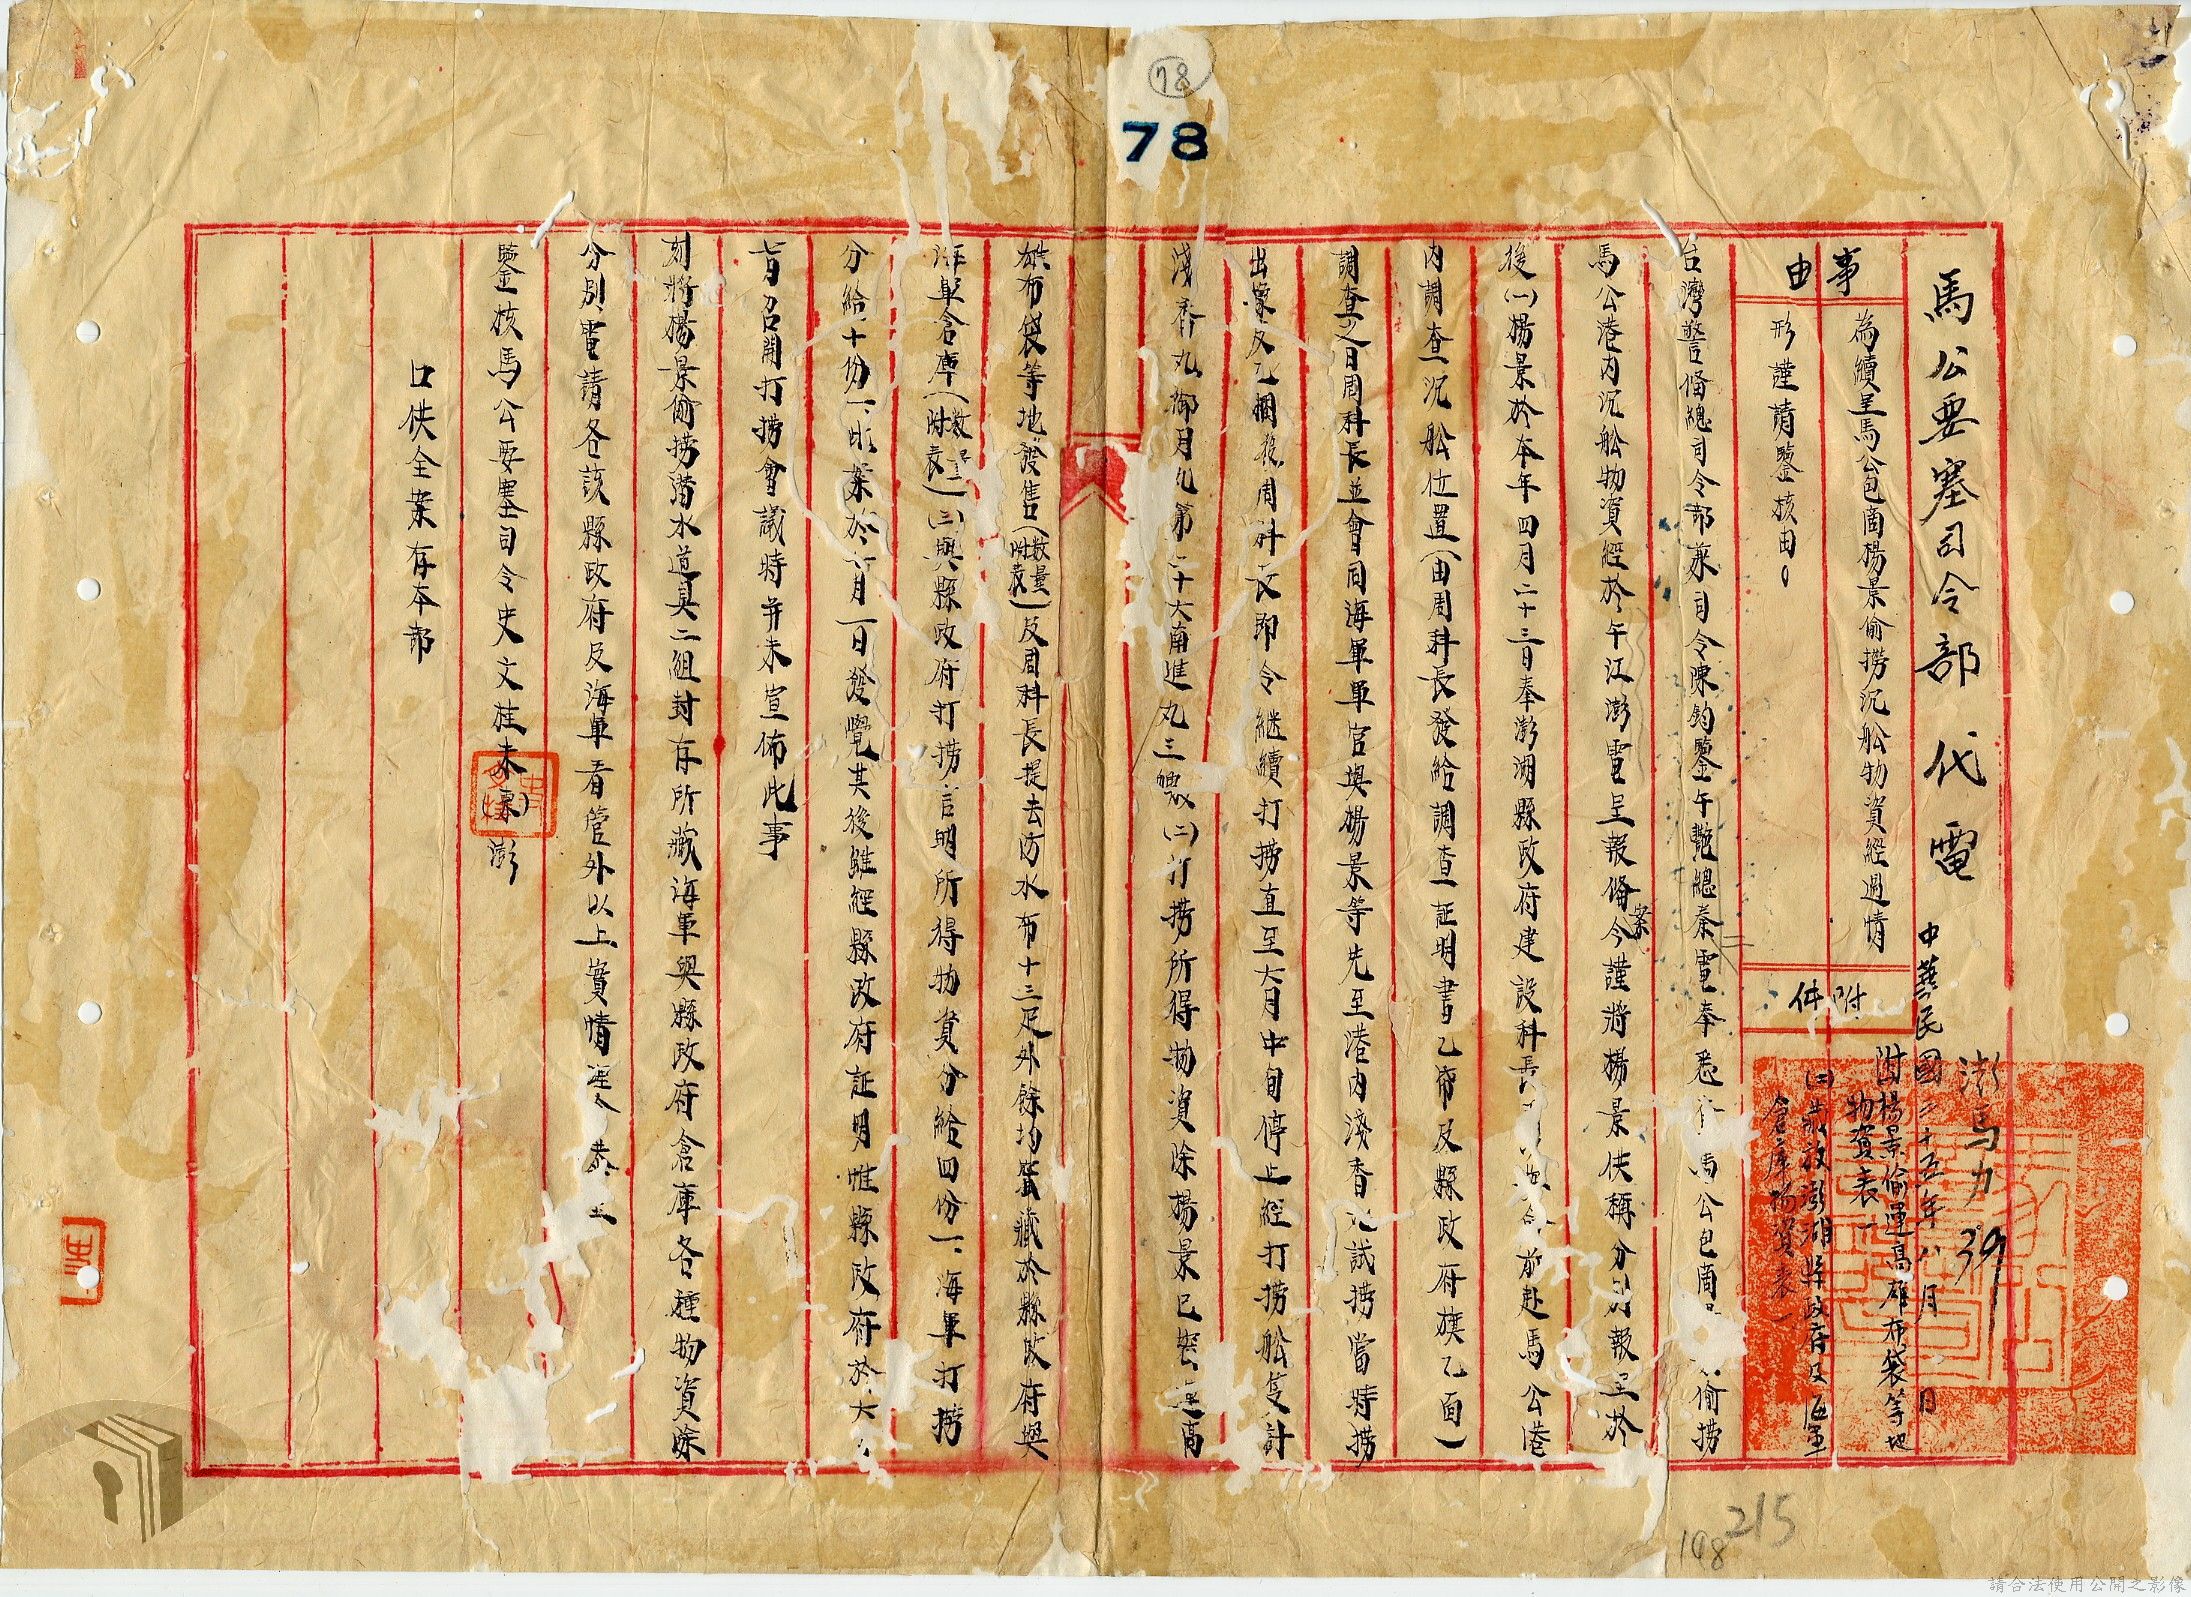 78
78
馬公要塞司令部代電
中華民國三十五年八月 日
澎馬力 39
事由
為續呈馬公包商楊景偷撈沉舩物資經過情
形謹請鑒核由
附件
附楊景偷運高雄布袋等地
物資表一
(二)藏放澎湖縣政府及海軍
倉庫物資表一
台灣警備總司令部兼司令陳鈞鑒午艷總秦電奉悉 馬公包商 偷撈
馬公港內沉舩物資經於午江澎電呈報備案今謹將楊景供稱分別報呈於
後(一)楊景於本年四月二十三日奉澎湖縣政府建設科長 前赴馬公港
內調查沉舩位置(由周科長發給調查証明書乙帋及縣政府旗乙面)
調查之日周科長並會同海軍軍官與楊景等先至港內淺香丸試撈當時撈
出橡皮九捆後周科長即令繼續打撈直至六月中旬停止經打撈舩隻計
淺香丸御月丸第二十六南進丸三艘(二)打撈所得物資除楊景已 運高
雄布袋等地發售(數量附表)及周科長提去防水布十三疋外餘均蓄藏於縣政府與
海軍倉庫(數量附表)(三)與縣政府打撈言明所得物資分給四份一、海軍打撈
分給十份一、此案於六月一日發覺其後雖經縣政府証明惟縣政府於六月
七日召開打撈會議時并未宣佈此事
刻將楊景偷撈潛水道具二組封存所藏海軍與縣政府倉庫各種物資除
分別電請各該縣政府及海軍看管外以上實情理合恭呈
鑒核馬公要塞司令史文桂未(東)澎
口供全案存本部
史文桂
215
198
請合法使用公開之影像